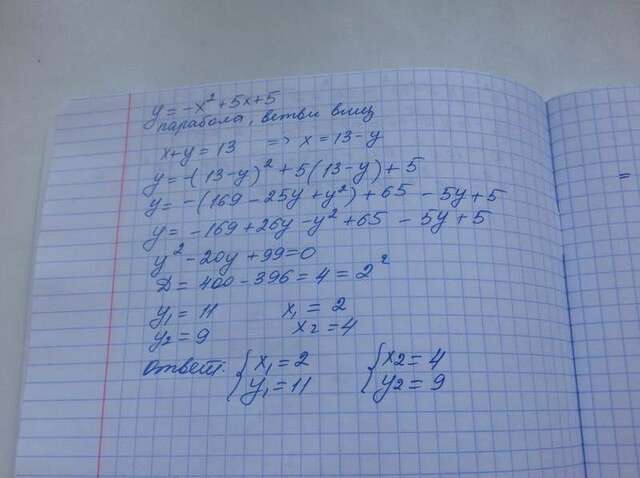 y = -x² + 5x + 5
парабола, ветви вниз
x+y = 13 => x = 13 - y
y = -(13-y)² + 5(13-y) + 5
y = -(169 - 25y + y²) + 65 - 5y + 5
y = -169 + 26y - y² + 65 - 5y + 5
y² - 20y + 99 = 0
D = 400 - 396 = 4 = 2²
y₁ = 11 x₁ = 2
y₂ = 9 x₂ = 4
Ответ: { x₁ = 2 { x₂ = 4
y₁ = 11 y₂ = 9
=